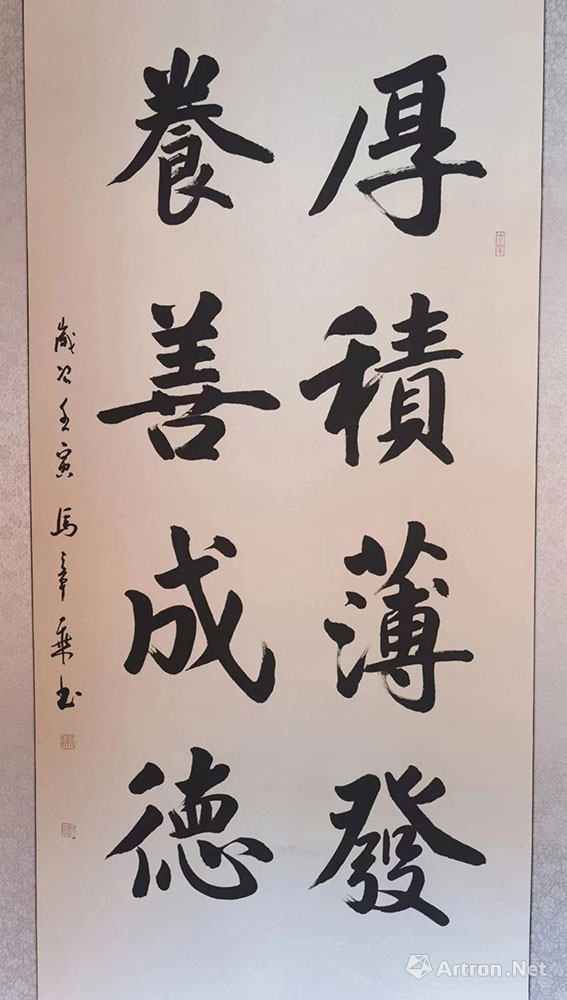 厚積薄發
養善成德
歲次壬寅馬章乘书
Artron.Net